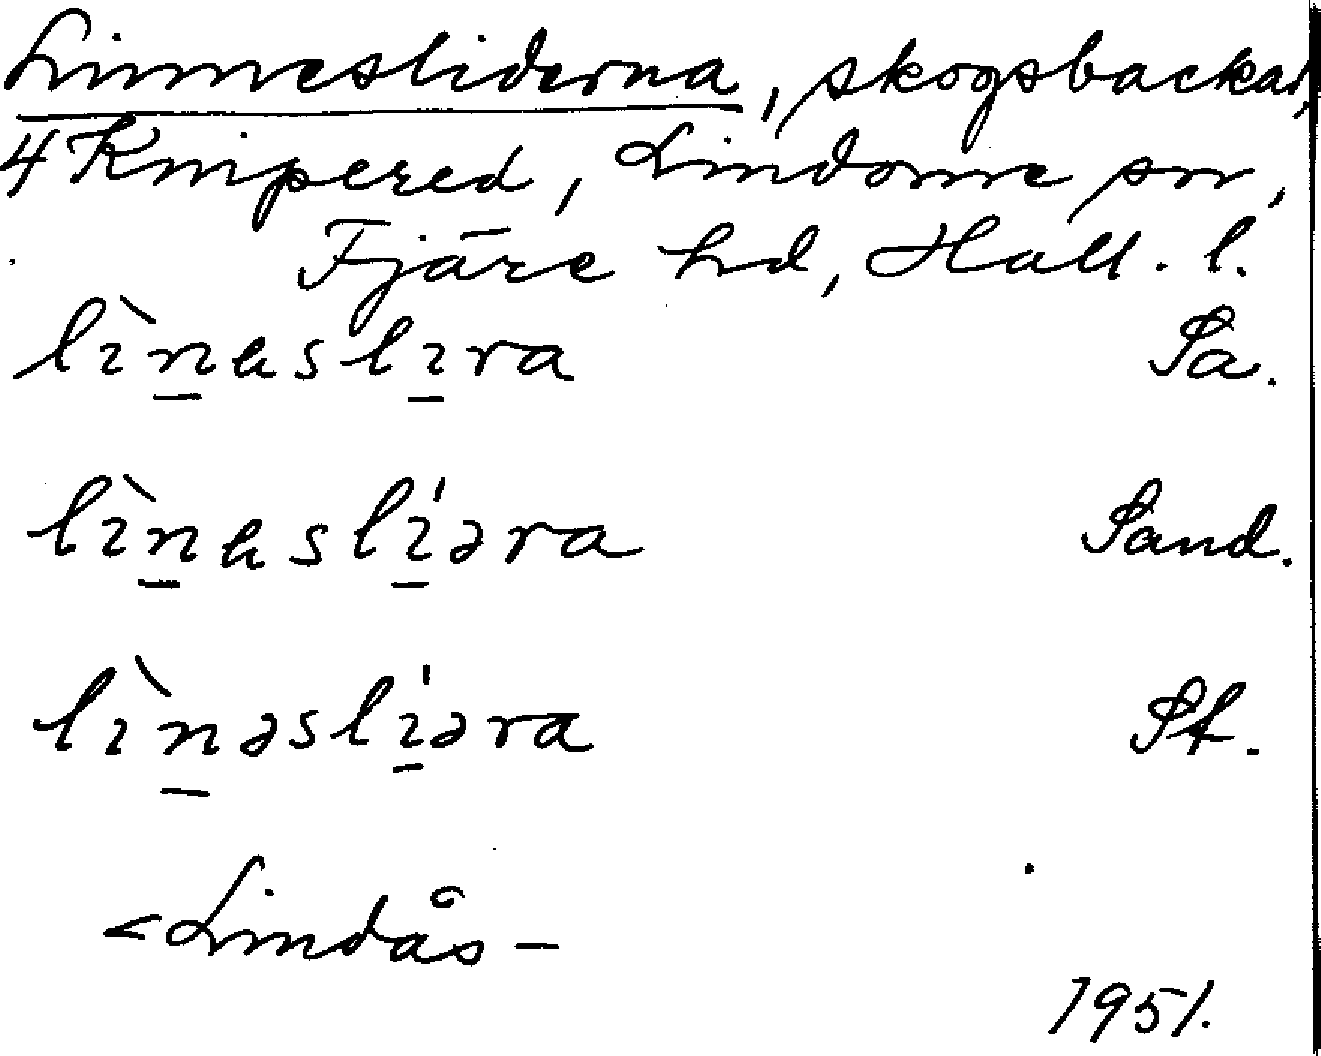 Linnesliderna, skogsbackar,
4 Knipered, Lindome sn,
Fjäre hd, Hall. l.
lìnɐslıra Sa.
lìnɐslíəra Sand.
lìnəslíəra St.
<Lindås-
1951.